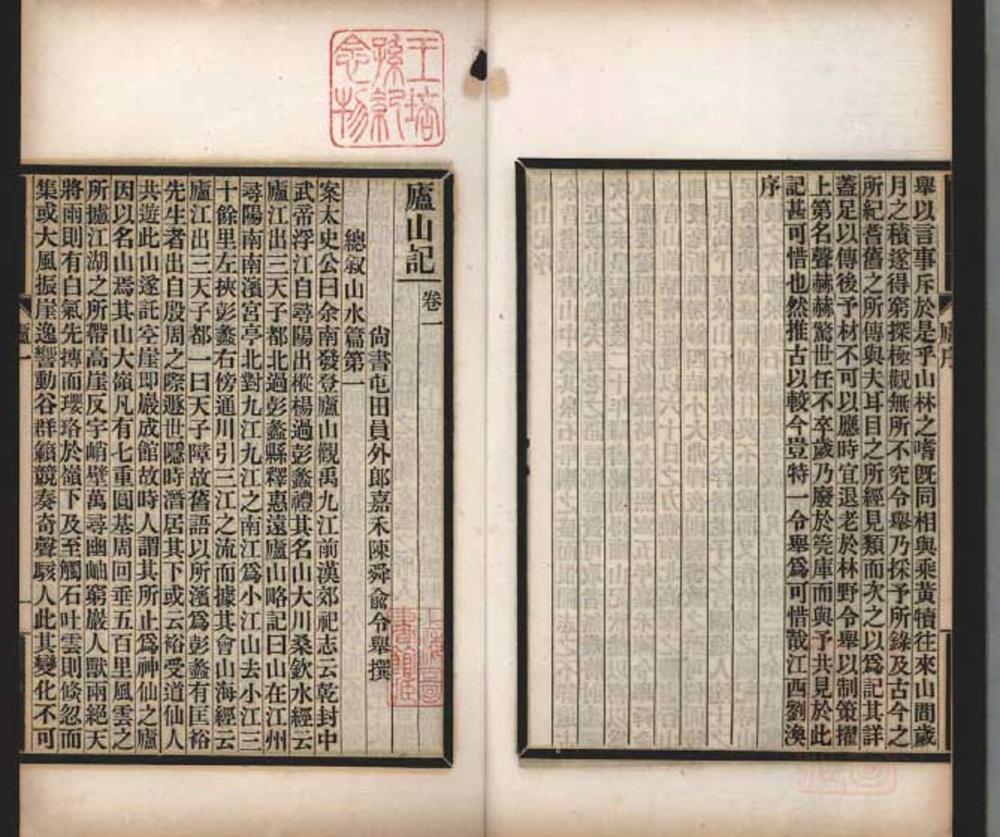 舉以言事斥於是乎山林之嗜旣同相與乘黃犢往來山間歲
月之積遂得窮探極觀無所不究令舉乃採予所錄及古今之
所紀耆舊之所傳與夫耳目之所經見類而次之以爲記其詳
蓋足以傳後予材不可以應時宜退老於林野令舉以制策擢
上第名聲赫赫驚世任不卒歲乃廢於筦庫而與予共見於此
記甚可惜也然推古以較今豈特一令舉爲可惜哉江西劉渙
序
廬序
廬山記 卷一
尚書屯田員外郎嘉禾陳舜兪令舉撰
總叙山水篇第一
案太史公曰余南發登廬山觀禹九江前漢郊祀志云乾封中
武帝浮江自尋陽出樅楊過彭蠡禮其名山大川桑欽水經云
廬江出三天子都北過彭蠡縣釋惠遠廬山略記曰山在江州
尋陽南南濱宮亭北對九江九江之南江爲小江山去小江三
十餘里左挾彭蠡右傍通川引三江之流而據其會山海經云
廬江出三天子都一曰天子障故舊語以所濱爲彭蠡有匡裕
先生者出自殷周之際遯世隱時潛居其下或云裕受道仙人
共遊此山遂託空崖即巖成館故時人謂其所止爲神仙之廬
因以名山焉其山大嶺凡有七重圓基周回垂五百里風雲之
所攄江湖之所帶高崖反宇峭壁萬尋幽岫窮巖人獸兩絕天
將雨則有白氣先摶而瓔珞於嶺下及至觸石吐雲則倏忽而
集或大風振崖逸響動谷群籟競奏奇聲駭人此其變化不可
廬一